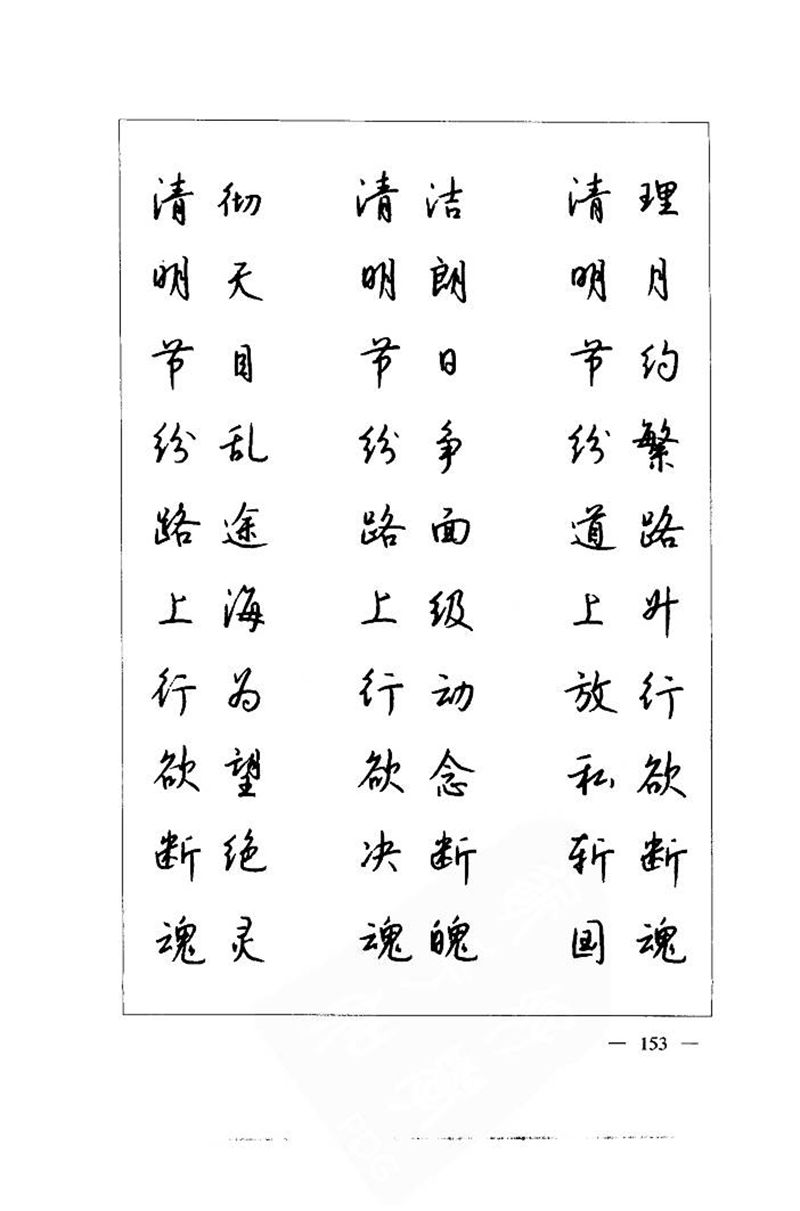 清彻 清洁 清理
明天 明朗 明月
节目 节日 节约
纷乱 纷争 纷繁
路途 路面 道路
上海 上级 上升
行为 行动 放行
欲望 欲念 私欲
断绝 决断 斩断
魂灵 魂魄 国魂
— 153 —